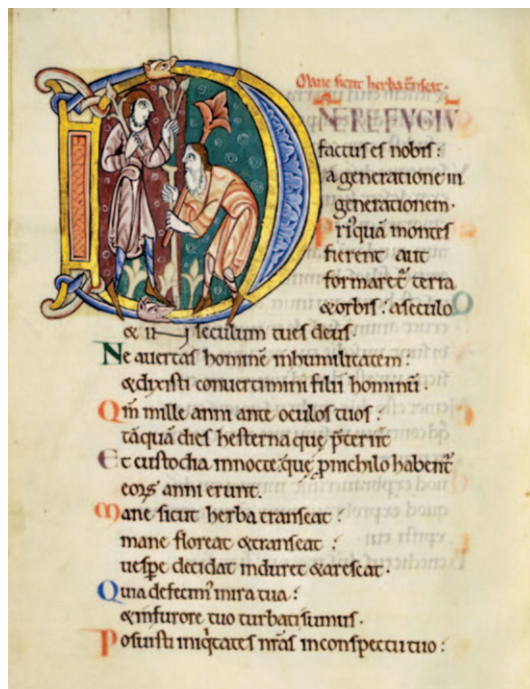 Mane sicut herba t̄nseat.
D NE REFUGIU
factus es nobis:
a generatione in
generationem.
Priusquā montes
fierent aut
formaret̄ terra
& orbis: a seculo
& usq; seculum tu es deus.
Ne auertas hominē in humilitatem:
& dixisti conuertimini filii hominū.
Qm̄ mille anni ante oculos tuos:
tāquā dies hesterna que p̄teriit
Et custodia in nocte: que p nichilo habent̄
eoꝝ anni erunt.
Mane sicut herba transeat:
mane floreat & transeat:
uespe decidat induret & arescat.
Quia defecim' in ira tua:
& in furore tuo turbati sumus.
Posuisti iniq̇tates nr̄as in conspectu tuo: